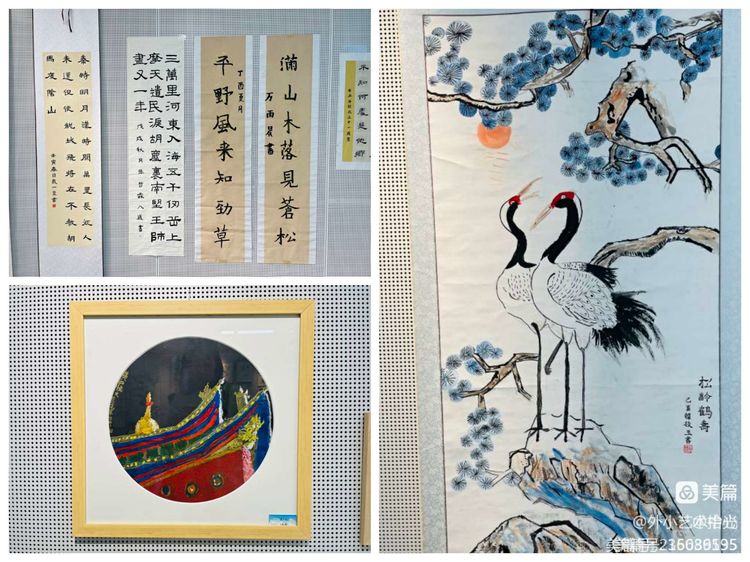 秦時明月漢時關萬里長征人
未還但使龍城飛將在不教胡
馬度陰山
三萬里河東入海五千仞岳上
摩天遺民淚胡塵裏南望王師
盡又一年
滿山木落見蒼松
平野風来知勁草
丁酉夏月
不知何處是他鄉
松齡鶴壽
美篇